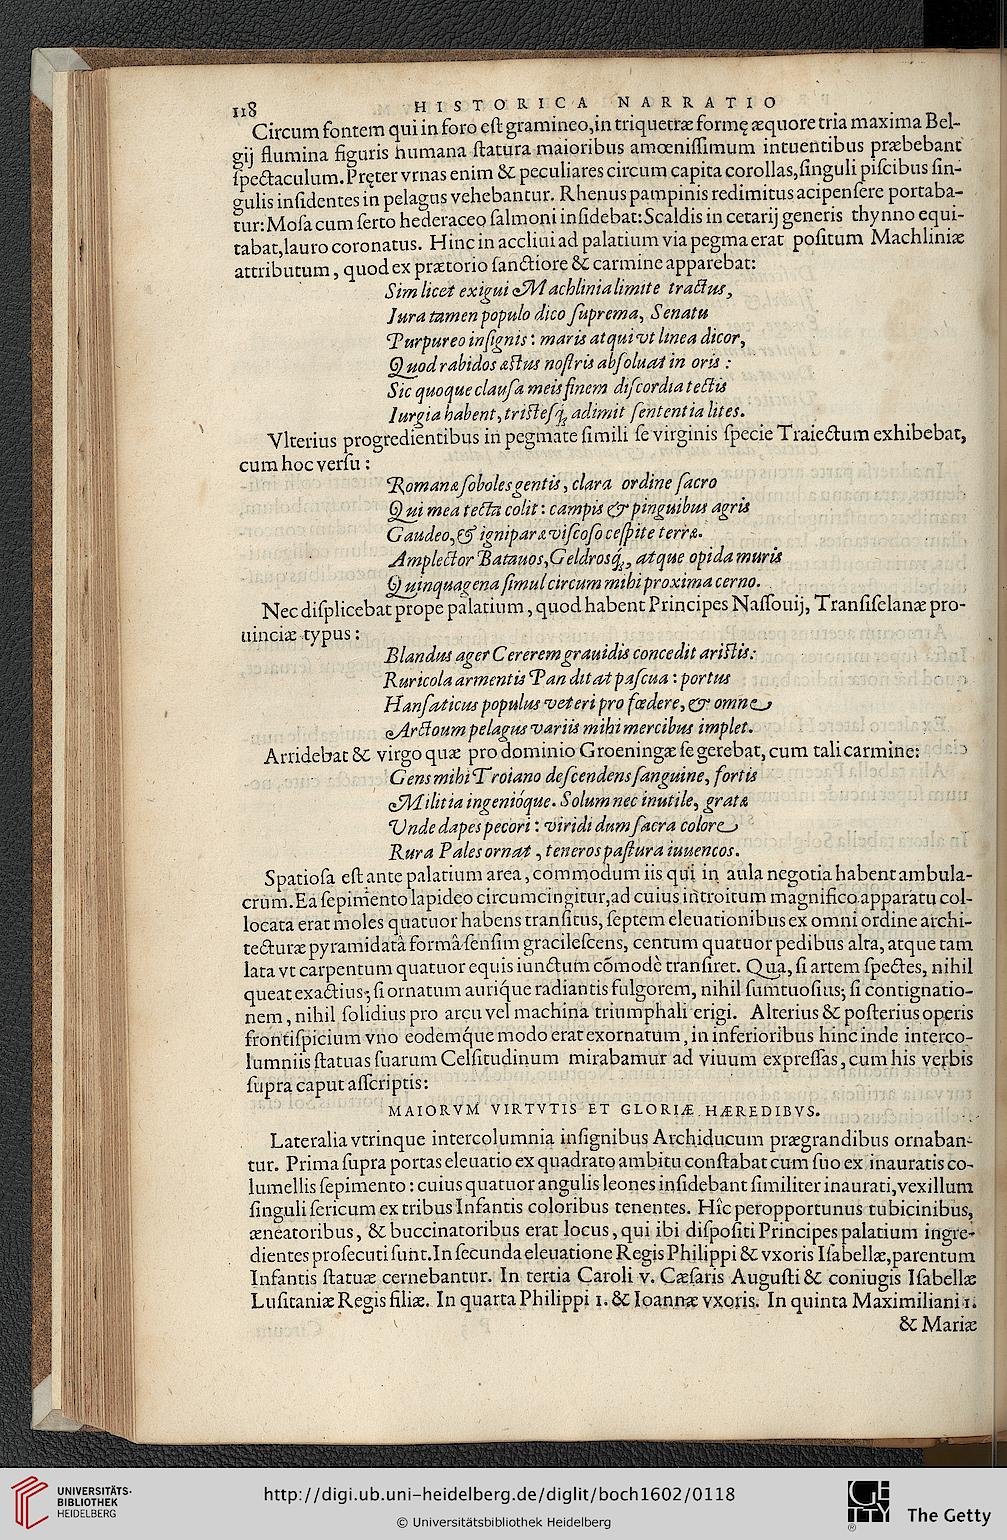 118 HISTORICA NARRATIO
Circum fontem qui in foro eſt gramineo, in triquetræ formę æquore tria maxima Bel-
gij flumina figuris humana ſtatura maioribus amœniſſimum intuentibus præbebant
ſpectaculum. Pręter vrnas enim & peculiares circum capita corollas, ſinguli piſcibus ſin-
gulis inſidentes in pelagus vehebantur. Rhenus pampinis redimitus acipenſere portaba-
tur: Moſa cum ſerto hederaceo ſalmoni inſidebat: Scaldis in cetarij generis thynno equi-
tabat, lauro coronatus. Hinc in accliui ad palatium via pegma erat poſitum Machliniæ
attributum, quod ex prætorio ſanctiore & carmine apparebat:
Sim licet exigui Machlinia limite tractus,
Iura tamen populo dico ſuprema, Senatu
Purpureo inſignis: maris atqui vt linea dicor,
Quod rabidos æſtus noſtris abſoluat in oris:
Sic quoque clauſa meis finem diſcordia tectis
Iurgia habent, triſteſq́; adimit ſententia lites.
Vlterius progredientibus in pegmate ſimili ſe virginis ſpecie Traiectum exhibebat,
cum hoc verſu:
Romanæ ſoboles gentis, clara ordine ſacro
Qui mea tecta colit: campis & pinguibus agris
Gaudeo, & igniparæ viſcoſo ceſpite terræ.
Amplector Batauos, Geldrosq́;, atque opida muris
Quinquagena ſimul circum mihi proxima cerno.
Nec diſplicebat prope palatium, quod habent Principes Naſſouij, Tranſiſelanæ pro-
uinciæ typus:
Blandus ager Cererem grauidis concedit ariſtis:
Ruricola armentis Pan ditat paſcua: portus
Hanſaticus populus veteri pro fœdere, & omne
Arctoum pelagus variis mihi mercibus implet.
Arridebat & virgo quæ pro dominio Groeningæ ſe gerebat, cum tali carmine:
Gens mihi Troiano deſcendens ſanguine, fortis
Militia ingenióque. Solum nec inutile, gratæ
Vnde dapes pecori: viridi dum ſacra colore
Rura Pales ornat, teneros paſtura iuuencos.
Spatioſa eſt ante palatium area, commodum iis qui in aula negotia habent ambula-
crum. Ea ſepimento lapideo circumcingitur, ad cuius introitum magnifico apparatu col-
locata erat moles quatuor habens tranſitus, ſeptem eleuationibus ex omni ordine archi-
tecturæ pyramidatâ formâ ſenſim gracileſcens, centum quatuor pedibus alta, atque tam
lata vt carpentum quatuor equis iunctum cõmodè tranſiret. Qua, ſi artem ſpectes, nihil
queat exactius; ſi ornatum auríque radiantis fulgorem, nihil ſumtuoſius; ſi contignatio-
nem, nihil ſolidius pro arcu vel machina triumphali erigi. Alterius & poſterius operis
frontiſpicium vno eodemq́ue modo erat exornatum, in inferioribus hinc inde interco-
lumniis ſtatuas ſuarum Celſitudinum mirabamur ad viuum expreſſas, cum his verbis
ſupra caput aſſcriptis:
MAIORVM VIRTVTIS ET GLORIÆ HÆREDIBVS.
Lateralia vtrinque intercolumnia inſignibus Archiducum prægrandibus ornaban-
tur. Prima ſupra portas eleuatio ex quadrato ambitu conſtabat cum ſuo ex inauratis co-
lumellis ſepimento: cuius quatuor angulis leones inſidebant ſimiliter inaurati, vexillum
ſinguli ſericum ex tribus Infantis coloribus tenentes. Hîc peropportunus tubicinibus,
æneatoribus, & buccinatoribus erat locus, qui ibi diſpoſiti Principes palatium ingre-
dientes proſecuti ſunt. In ſecunda eleuatione Regis Philippi & vxoris Iſabellæ, parentum
Infantis ſtatuæ cernebantur. In tertia Caroli v. Cæſaris Auguſti & coniugis Iſabellæ
Luſitaniæ Regis filiæ. In quarta Philippi 1. & Ioannæ vxoris. In quinta Maximiliani 1.
& Mariæ
UNIVERSITÄTS-
BIBLIOTHEK
HEIDELBERG
http://digi.ub.uni-heidelberg.de/diglit/boch1602/0118
© Universitätsbibliothek Heidelberg
GETTY
®
The Getty